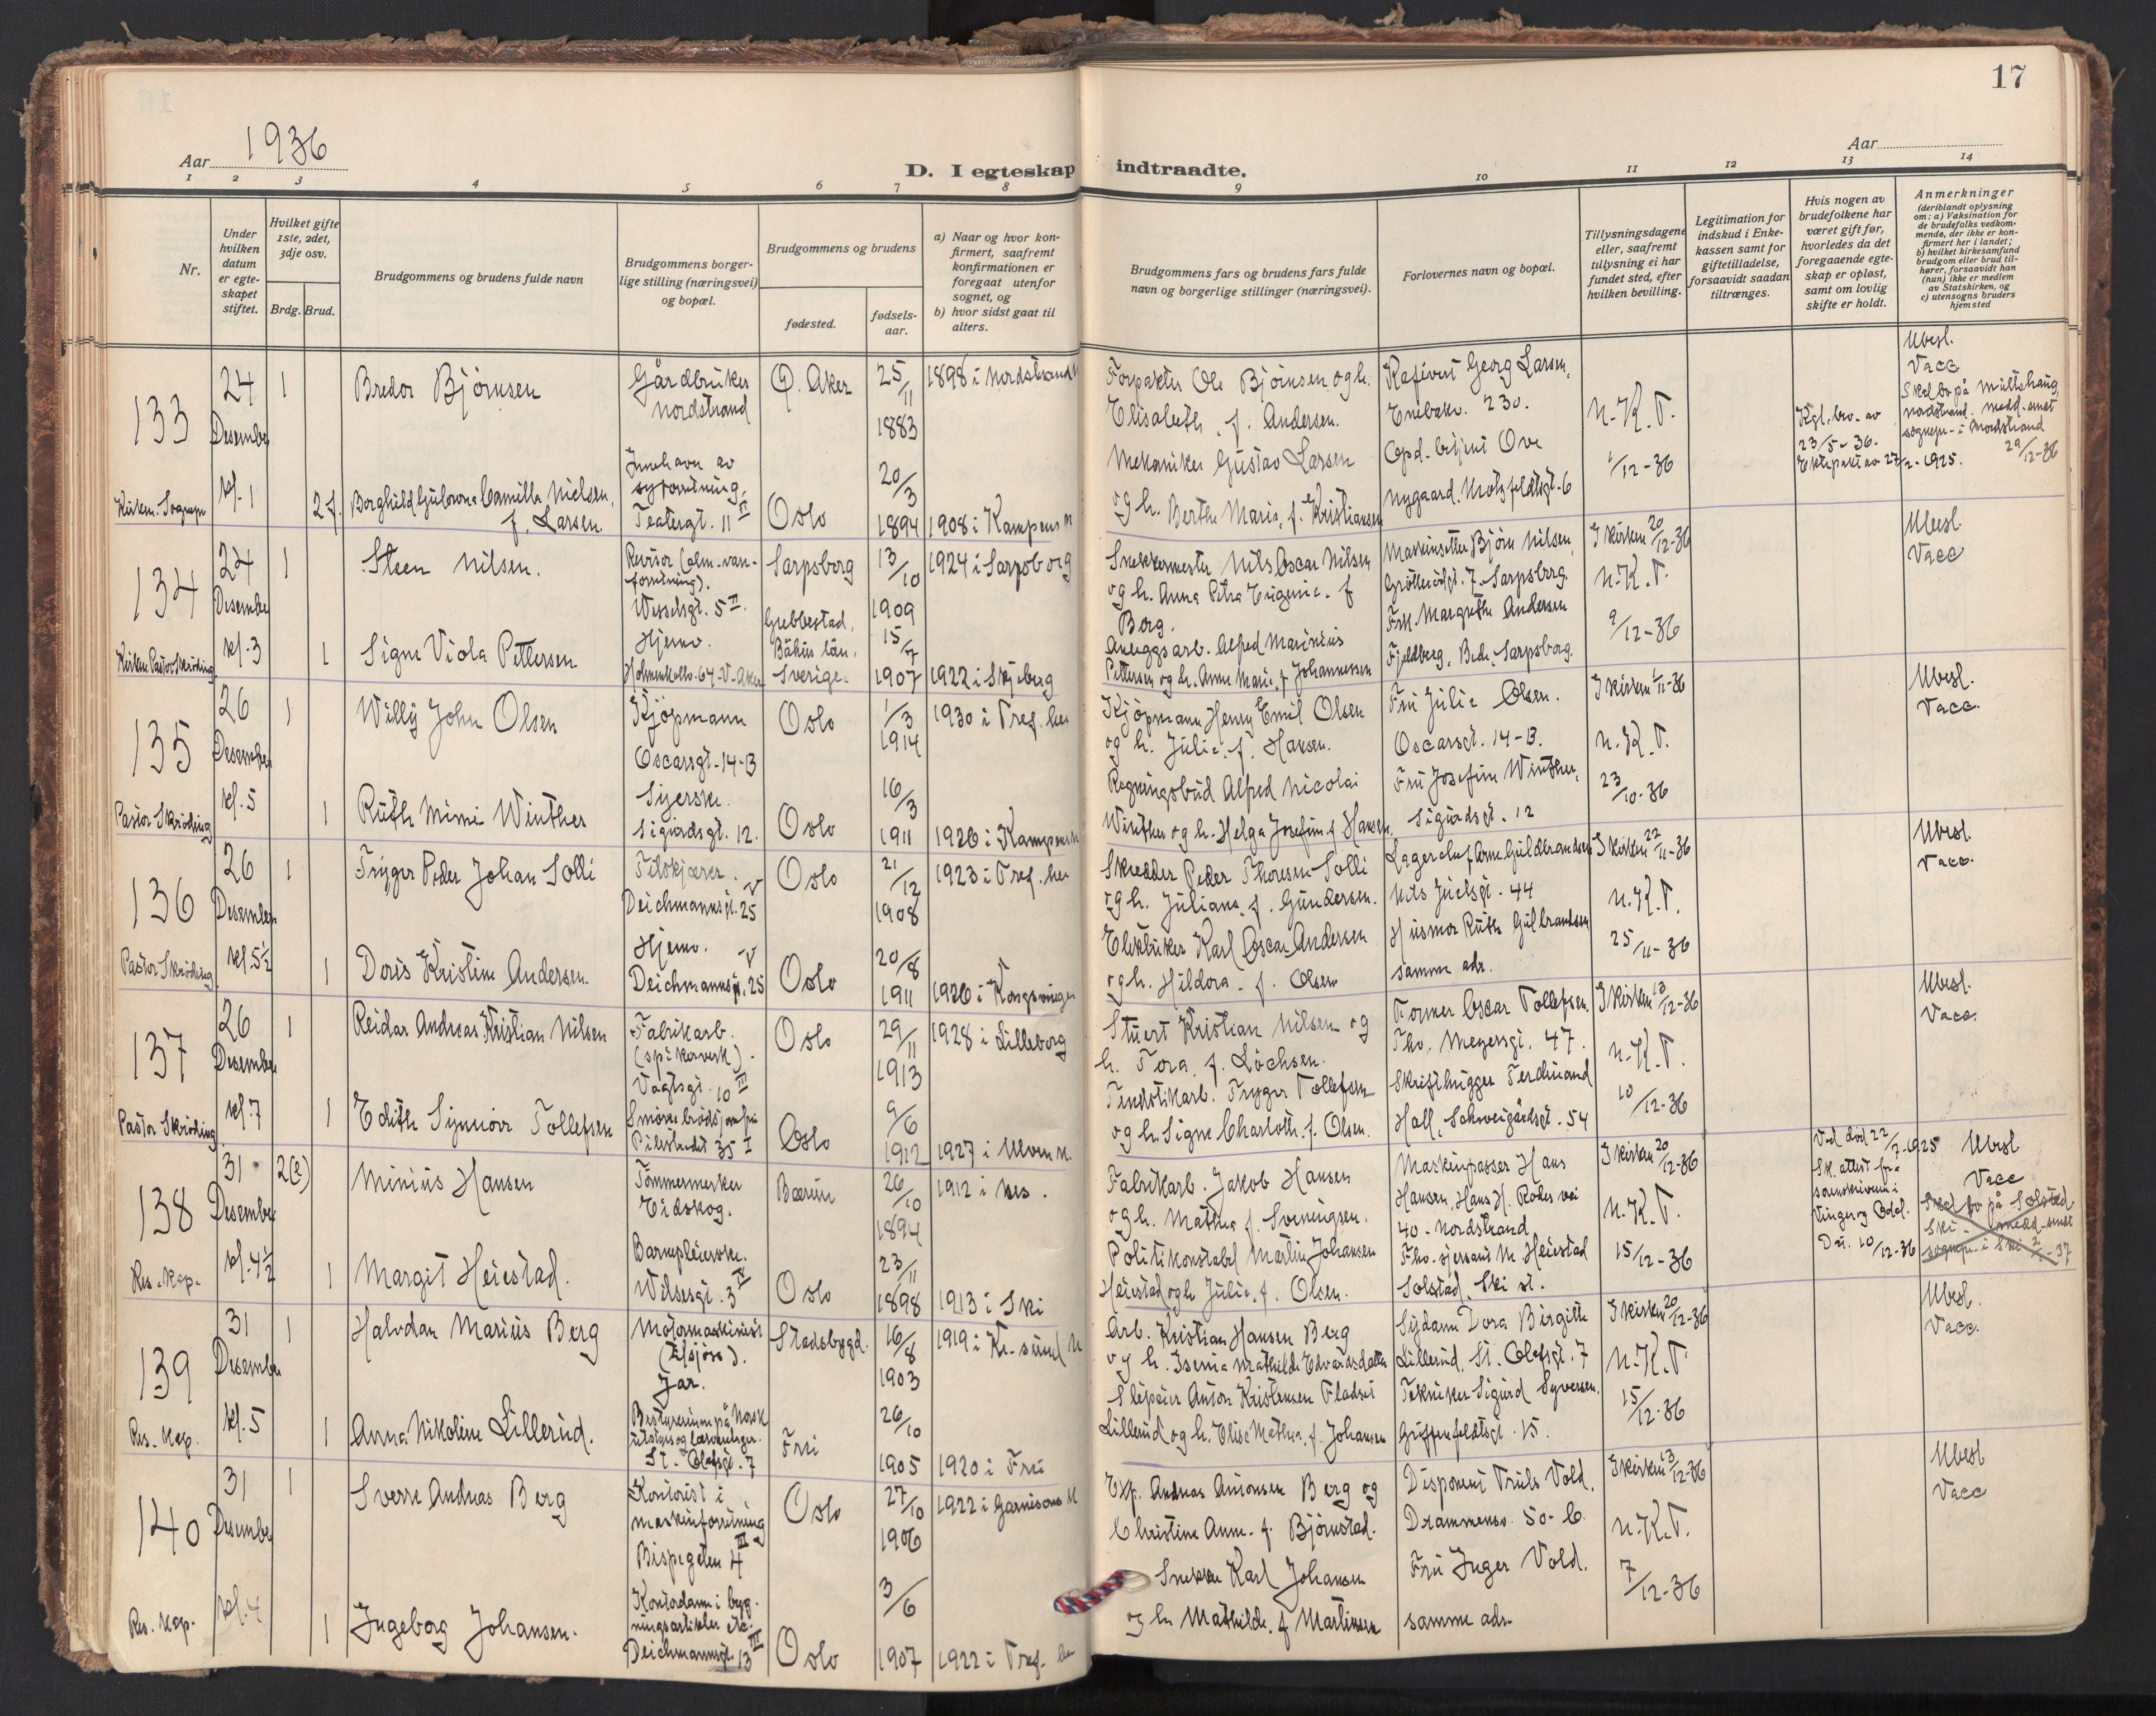 17
Aar 1936
Aar
D. I egteskap indtraadte.
1 2 3 4 5 6 7 8 9 10 11 12 13 14
Nr.
Under hvilken datum er egteskapet stiftet.
Hvilket gifte 1ste, 2det, 3dje osv.
Brdg. Brud.
Brudgommens og brudens fulde navn
Brudgommens borgerlige stilling (næringsvei) og bopæl.
Brudgommens og brudens
fødested.
fødselsaar.
a) Naar og hvor konfirmert, saafremt konfirmationen er foregaat utenfor sognet, og
b) hvor sidst gaat til alters.
Brudgommens fars og brudens fars fulde navn og borgerlige stillinger (næringsvei).
Forlovernes navn og bopæl.
Tillysningsdagene eller, saafremt tillysning ei har fundet sted, efter hvilken bevilling.
Legitimation for indskud i Enkekassen samt for giftetilladelse, forsaavidt saadan tiltrænges.
Hvis nogen av brudefolkene har været gift før, hvorledes da det foregaaende egteskap er opløst, samt om lovlig skifte er holdt.
Anmerkninger
(deriblandt oplysning om: a) Vaksination for de brudefolks vedkommende, der ikke er konfirmert her i landet;
b) hvilket kirkesamfund brudgom eller brud tilhører, forsaavidt han (hun) ikke er medlem av Statskirken, og
c) utensogns bruders hjemsted
133
24 Desember
1
Bredor Bjørnsen
Gårdbruker
Nordstrand
Ø. Aker
25/11 1883
1898 i Nordstrand
Forpakter Ole Bjørnsen og h.
Elisabeth, f. Andersen.
Kafévert Georg Larsen,
Enebakv. 230.
N.K.T.
1/12-36
Kgl. bev. av
23/5-36.
Ektepakt av 27/2-1925.
Ubesl.
Vacc
Nordstrand. medd. smst
sognepr. i Nordstrand
29/12-36
kl. 1
2 f.
Borghild Camilla Nielsen,
f. Larsen
Innehaver av
syforretning,
Teatergt. 11 II
Oslo
20/3 1894
1908 i Kampens K
Mekaniker Gustav Larsen
og h. Berthe Marie, f. Kristiansen
Opd. betjent Ove
Nygaard. Motzfeldtsgt. 6
134
24 Desember
1
Steen Nilsen.
Revisor
Wesselsgt. 5 II.
Sarpsborg
13/10 1909
1924 i Sarpsborg
Snekkermester Nils Oscar Nilsen
og h. Anna Petra Eugenie. f
Berg.
Maskinsetter Bjørn Nilsen,
7. Sarpsborg.
I kirken 20/12-36
N.K.T.
9/12-36
Ubesl.
Vacc
Kirken Pastor Skrøding
kl. 3
1
Signe Viola Pettersen
Hjemv.
Holmenkollv. 64 V. Aker
Grebbestad,
Båhus län,
Sverige.
15/7 1907
1922 i Skjeberg
Anleggsarb. Alfred Marinius
Pettersen og h. Anne Marie, f Johannessen
Frk. Margrethe Andersen
Fjeldberg, Sarpsborg.
135
26 Desember
1
Willy John Olsen
Kjøpmann
Oscarsgt. 14-B
Oslo
1/3 1914
1930 i Tref. her
Kjøpmann Henry Emil Olsen
og h. Julie, f. Hansen.
Fru Julie Olsen.
Oscarsgt. 14-B.
I kirken 1/11-36
N.K.T.
23/10-36
Ubesl.
Vacc.
Pastor Skrøding
kl. 5
1
Ruth Mimi Winther
Syerske.
Sigurdsgt. 12.
Oslo
16/3 1911
1926 i Kampens K
Regningsbud Alfred Nicolai
Winther og h. Helga Josefine f Hansen.
Fru Josefine Winther,
Sigurdsgt. 12
136
26 Desember
1
Trygve Peder Johan Solli
Tilskjærer.
Deichmannsgt. 25 V
Oslo
21/12 1908
1923 i Tref. her
Skredder Peder Thoresen Solli
og h. Juliane, f. Gundersen.
Lagerchef Arne Guldbrandsen
Nils Juelsgt. 44
I kirken 22/11-36
N.K.T.
25/11-36
Ubesl.
Vacc.
Pastor Skrøding
kl. 5½
1
Doris Kristine Andersen.
Hjemv.
Deichmannsgt. 25 V
Oslo
20/8 1911
1926 i Kongsvinger
Karl Oscar Andersen
og h. Hildora. f. Olsen
Husmor Ruth Gulbrandsen
samme adr.
137
26 Desember
1
Reidar Andreas Kristian Nilsen
Fabrikarb.
(spikerverk).
Vogtsgt. 10 III
Oslo
29/11 1913
1928 i Lilleborg
Stuert Kristian Nilsen og
h. Tora, f. Lochsen.
Former Oscar Tollefsen,
Thv. Meyersgt. 47.
I kirken 13/12-36
N.K.T.
10/12-36
Ubesl.
Vacc.
Pastor Skrøding
kl. 7
1
Edith Synnøve Tollefsen
Smørebrødsjomfru
Pilestredet 35 I
Oslo
9/6 1912
1927 i Ulvern K.
Fyrstikarb. Trygve Tollefsen
og h. Signe Charlotte, f. Olsen.
Skrifthugger Ferdinand
Hall, Schweigaardsgt. 54
138
31 Desember
2(e)
Minius Hansen
Tømmermerker
Eidskog.
Bærum
26/10 1894
1912 i Nes.
Fabrikarb. Jakob Hansen
og h. Mathea f. Sveningsen.
Maskinpasser Hans
Hansen, Hans H. Rodes vei
40. Nordstrand
I kirken 20/12-36
N.K.T.
15/12-36
Ved død 22/7-1925
Sk. attest fra
sorenskriveren i
Vinger og Odal.
Dat. 10/12-36
Ubesl
Vacc
Skal bo på Solstad
Ski. medd. smst
sognepr. i Ski 2/1-37
Res. kap.
kl. 4½
1
Margit Heiestad.
Barnepleierske.
Wilsesgt. 3 IV
Oslo
23/11 1898
1913 i Ski
Politikonstabel Martin Johansen
Heiestad og h. Julie, f. Olsen.
M. Heiestad
Solstad, Ski st.
139
31 Desember
1
Halvdan Marius Berg
Motormaskinist
(tilsjøs).
Jar.
Stadsbygd.
16/8 1903
1919 i Kr.sund N
Arb. Kristian Hansen Berg
og h. Isenia Mathilde Edvardsdatter
Sydame Dora Birgitte
Lillerud, St. Olafsgt. 7
I kirken 20/12-36
N.K.T.
15/12-36
Ubesl.
Vacc.
Res. kap.
kl. 5
1
Anna Nikoline Lillerud.
St. Olafsgt. 7
Frei
26/10 1905
1920 i Frei
Anton Kristensen Fladset
Lillerud og h. Elise Mathea, f. Johansen
Tekniker Sigurd Syversen,
Griffenfeldtsgt. 15.
140
31 Desember
1
Sverre Andreas Berg
Kontorist i
maskinforretning
Bispegaten 4 III
Oslo
27/10 1906
1922 i Garnisons K
Exp. Andreas Antonsen Berg og
Christine Anne. f. Bjørnstad.
Disponent Truls Vold,
Drammensv. 50-C.
I kirken 13/12-36
N.K.T.
7/12-36
Ubesl
Vacc
Res. kap.
kl. 4
1
Ingeborg Johansen.
Kontordame i byg-
ningsartikler etc.
Deichmannsgt. 13 III
Oslo
3/6 1907
1922 i Tref. her
Snekker Karl Johansen
og h. Mathilde, f Martinsen
Fru Inger Vold.
samme adr.